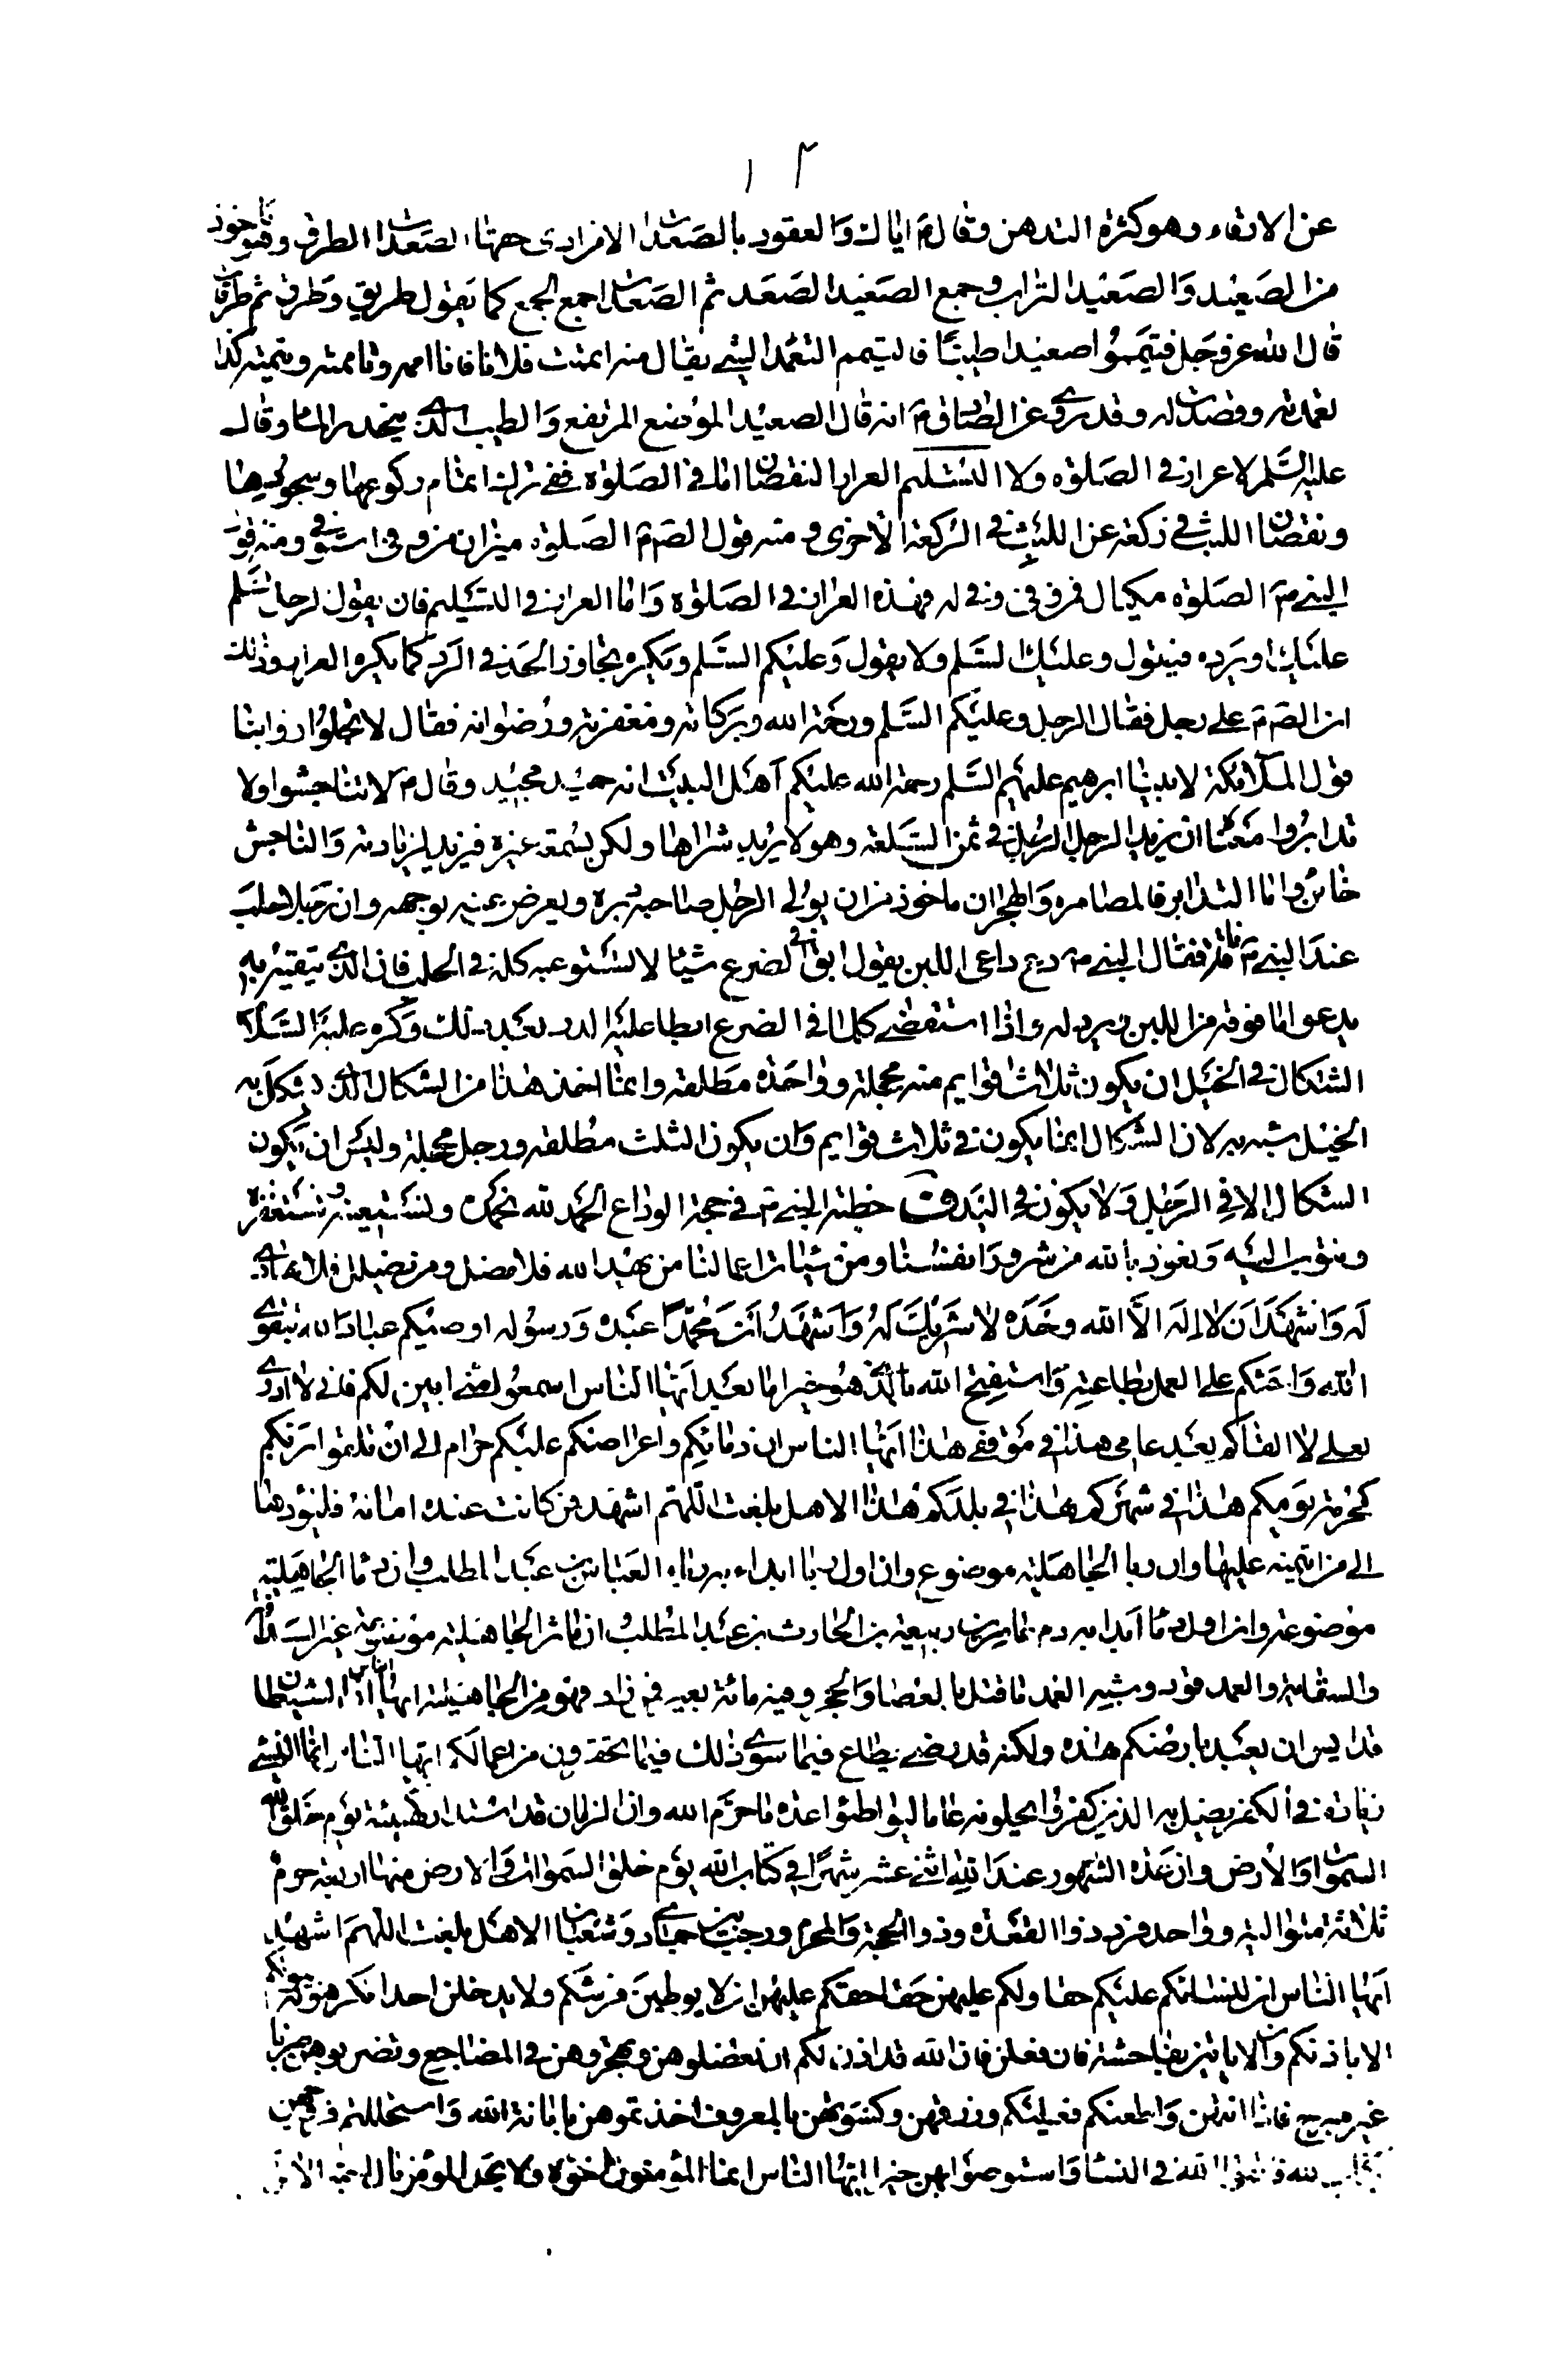 عن الارفاء وهو كثرة التدهن وقال م اياك والعقود بالصعدات الا من ادى حقها الصعدات الطرق وهو ماخوذ
من الصعيد والصعيد التراب وجمع الصعيد الصعد ثم الصعدات جمع الجمع كما يقول طريق وطرق ثم طرقات
قال الله عز وجل فتيمموا صعيدا طيبا فالتيمم التعمد للشي يقال منه ايممت فلانا فانا اممه وتاممته وتيمته كذا
تعمدته وقصدت له وقد روى عن الصادق م انه قال الصعيد الموضع المرتفع والطيب الذى ينحدر الماء وقال
عليه السلم لا عرار في الصلوة ولا التسليم العرار النقصان اما في الصلوة ففي ترك اتمام ركوعها وسجودها
ونقصان اللبث في ركعة عن اللبث في الركعة الاخرى ومنه قول الص م الصلوة ميزان من وفى استوفى ومنه قول
النبي ص الصلوة مكيال فمن وفى وفى له فهذه العرار في الصلوة واما العرار في التسليم فان يقول الرجل السلم
عليك او يرده فيقول وعليك السلم ولا يقول وعليكم السلم ويكره تجاوز الحد في الرد كما يكره العرار وذلك
ان الص م على رجل فقال الرجل وعليكم السلم ورحمة الله وبركاته ومغفرته ورضوانه فقال لا تجاوزوا بنا
قول الملائكة لابينا ابرهيم عليهم السلم رحمة الله عليكم اهل البيت انه حميد مجيد وقال م لا تناجشوا ولا
تدابروا معناه ان يزيد الرجل الرجل في ثمن السلعة وهو لا يريد شراها ولكن يسمعه غيره فيزيد لزيادته والناجش
خائن واما التدابر فالمصارمة والهجران ماخوذ من ان يولي الرجل صاحبه دبره ويعرض عنه بوجهه وان رجلا حلب
عند النبي ص ناقة فقال النبي ص دع داعى اللبن يقول ابق في الضرع شيئا لا تستوعبه كله في الحلب فان الذى تبقيه به
يدعو ما فوقه من اللبن وينزله واذا استقضى كلما في الضرع ابطا عليه الدر بعد ذلك وكره عليه السلام
الشكال في الخيل ان يكون ثلاث قوايم منه محجلة وواحدة مطلقة وانما اخذ هذا من الشكال الذى يشكل به
الخيل شبه به لان الشكال انما يكون في ثلاث قوايم وان يكون الثلث مطلقة ورجل محجلة وليس ان يكون
الشكال الا في الرجل ولا يكون في اليد خطبة النبي ص في حجة الوداع الحمد لله نحمده ونستعينه ونستغفره
ونتوب اليه ونعوذ بالله من شرور انفسنا ومن سيئات اعمالنا من يهد الله فلا مضل ومن يضلل فلا هادى
له واشهد ان لا اله الا الله وحده لا شريك له واشهد ان محمدا عبده ورسوله اوصيكم عباد الله بتقوى
الله واحثكم على العمل بطاعته واستفتح الله بالذى هو خير اما بعد ايها الناس اسمعوا مني ابين لكم فاني لا ادرى
لعلي لا القاكم بعد عامي هذا في موقفي هذا ايها الناس ان دمائكم واعراضكم عليكم حرام الى ان تلقوا ربكم
كحرمة يومكم هذا في شهركم هذا في بلدكم هذا الا هل بلغت اللهم اشهد فمن كانت عنده امانة فليؤدها
الى من ائتمنه عليها وان ربا الجاهلية موضوع وان اول ربا ابداء به رباء العباس بن عبد المطلب وان دماء الجاهلية
موضوعة وان اول دماء ابداء به دم عامر بن ربيعة بن الحارث بن عبد المطلب ان ماثر الجاهلية موضوعة غير السدانة
والسقاية والعمد قود وشبه العمد ما قتل بالعصا والحجر وفيه مائة بعير فمن زاد فهو من الجاهلية ايها الناس ان الشيطان
قد ايس ان يعبد بارضكم هذه ولكنه قد رضى يطاع فيما سوى ذلك فيما تحقرون من اعمالكم ايها الناس انما النسي
زيادة في الكفر يضل به الذين كفروا يحلونه عاما ليواطئوا عدة ما حرم الله وان الزمان قد استدار كهيئة يوم خلق الله
السموات والارض وان عدة الشهور عند الله اثنى عشر شهرا في كتاب الله يوم خلق السموات والارض منها اربعة حرم
ثلاثة متوالية وواحد فرد ذوا القعدة وذو الحجة والمحرم ورجب بين جمادى وشعبان الا هل بلغت اللهم اشهد
ايها الناس ان لنسائكم عليكم حقا ولكم عليهن حقا حقكم عليهن ان لا يوطين فرشكم ولا يدخلن احدا تكرهونه بيوتكم
الا باذنكم والا ياتين بفاحشة فان فعلن فان الله قد اذن لكم ان تعضلوهن وتهجروهن في المضاجع وتضربوهن ضربا
غير مبرح فاذا انتهين واطعنكم فعليكم رزقهن وكسوتهن بالمعروف اخذتموهن بامانة الله واستحللتم فروجهن
بكتاب الله فاتقوا الله في النساء واستوصوا بهن خيرا ايها الناس انما المؤمنون اخوة ولا يحل لمؤمن مال اخيه الا